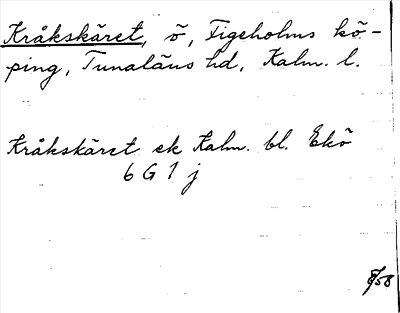 Kråkskäret, ö, Figeholms kö-
ping, Tunaläns hd, Kalm. l.
Kråkskäret ek Kalm. bl. Ekö
6 G 1 j
8/58